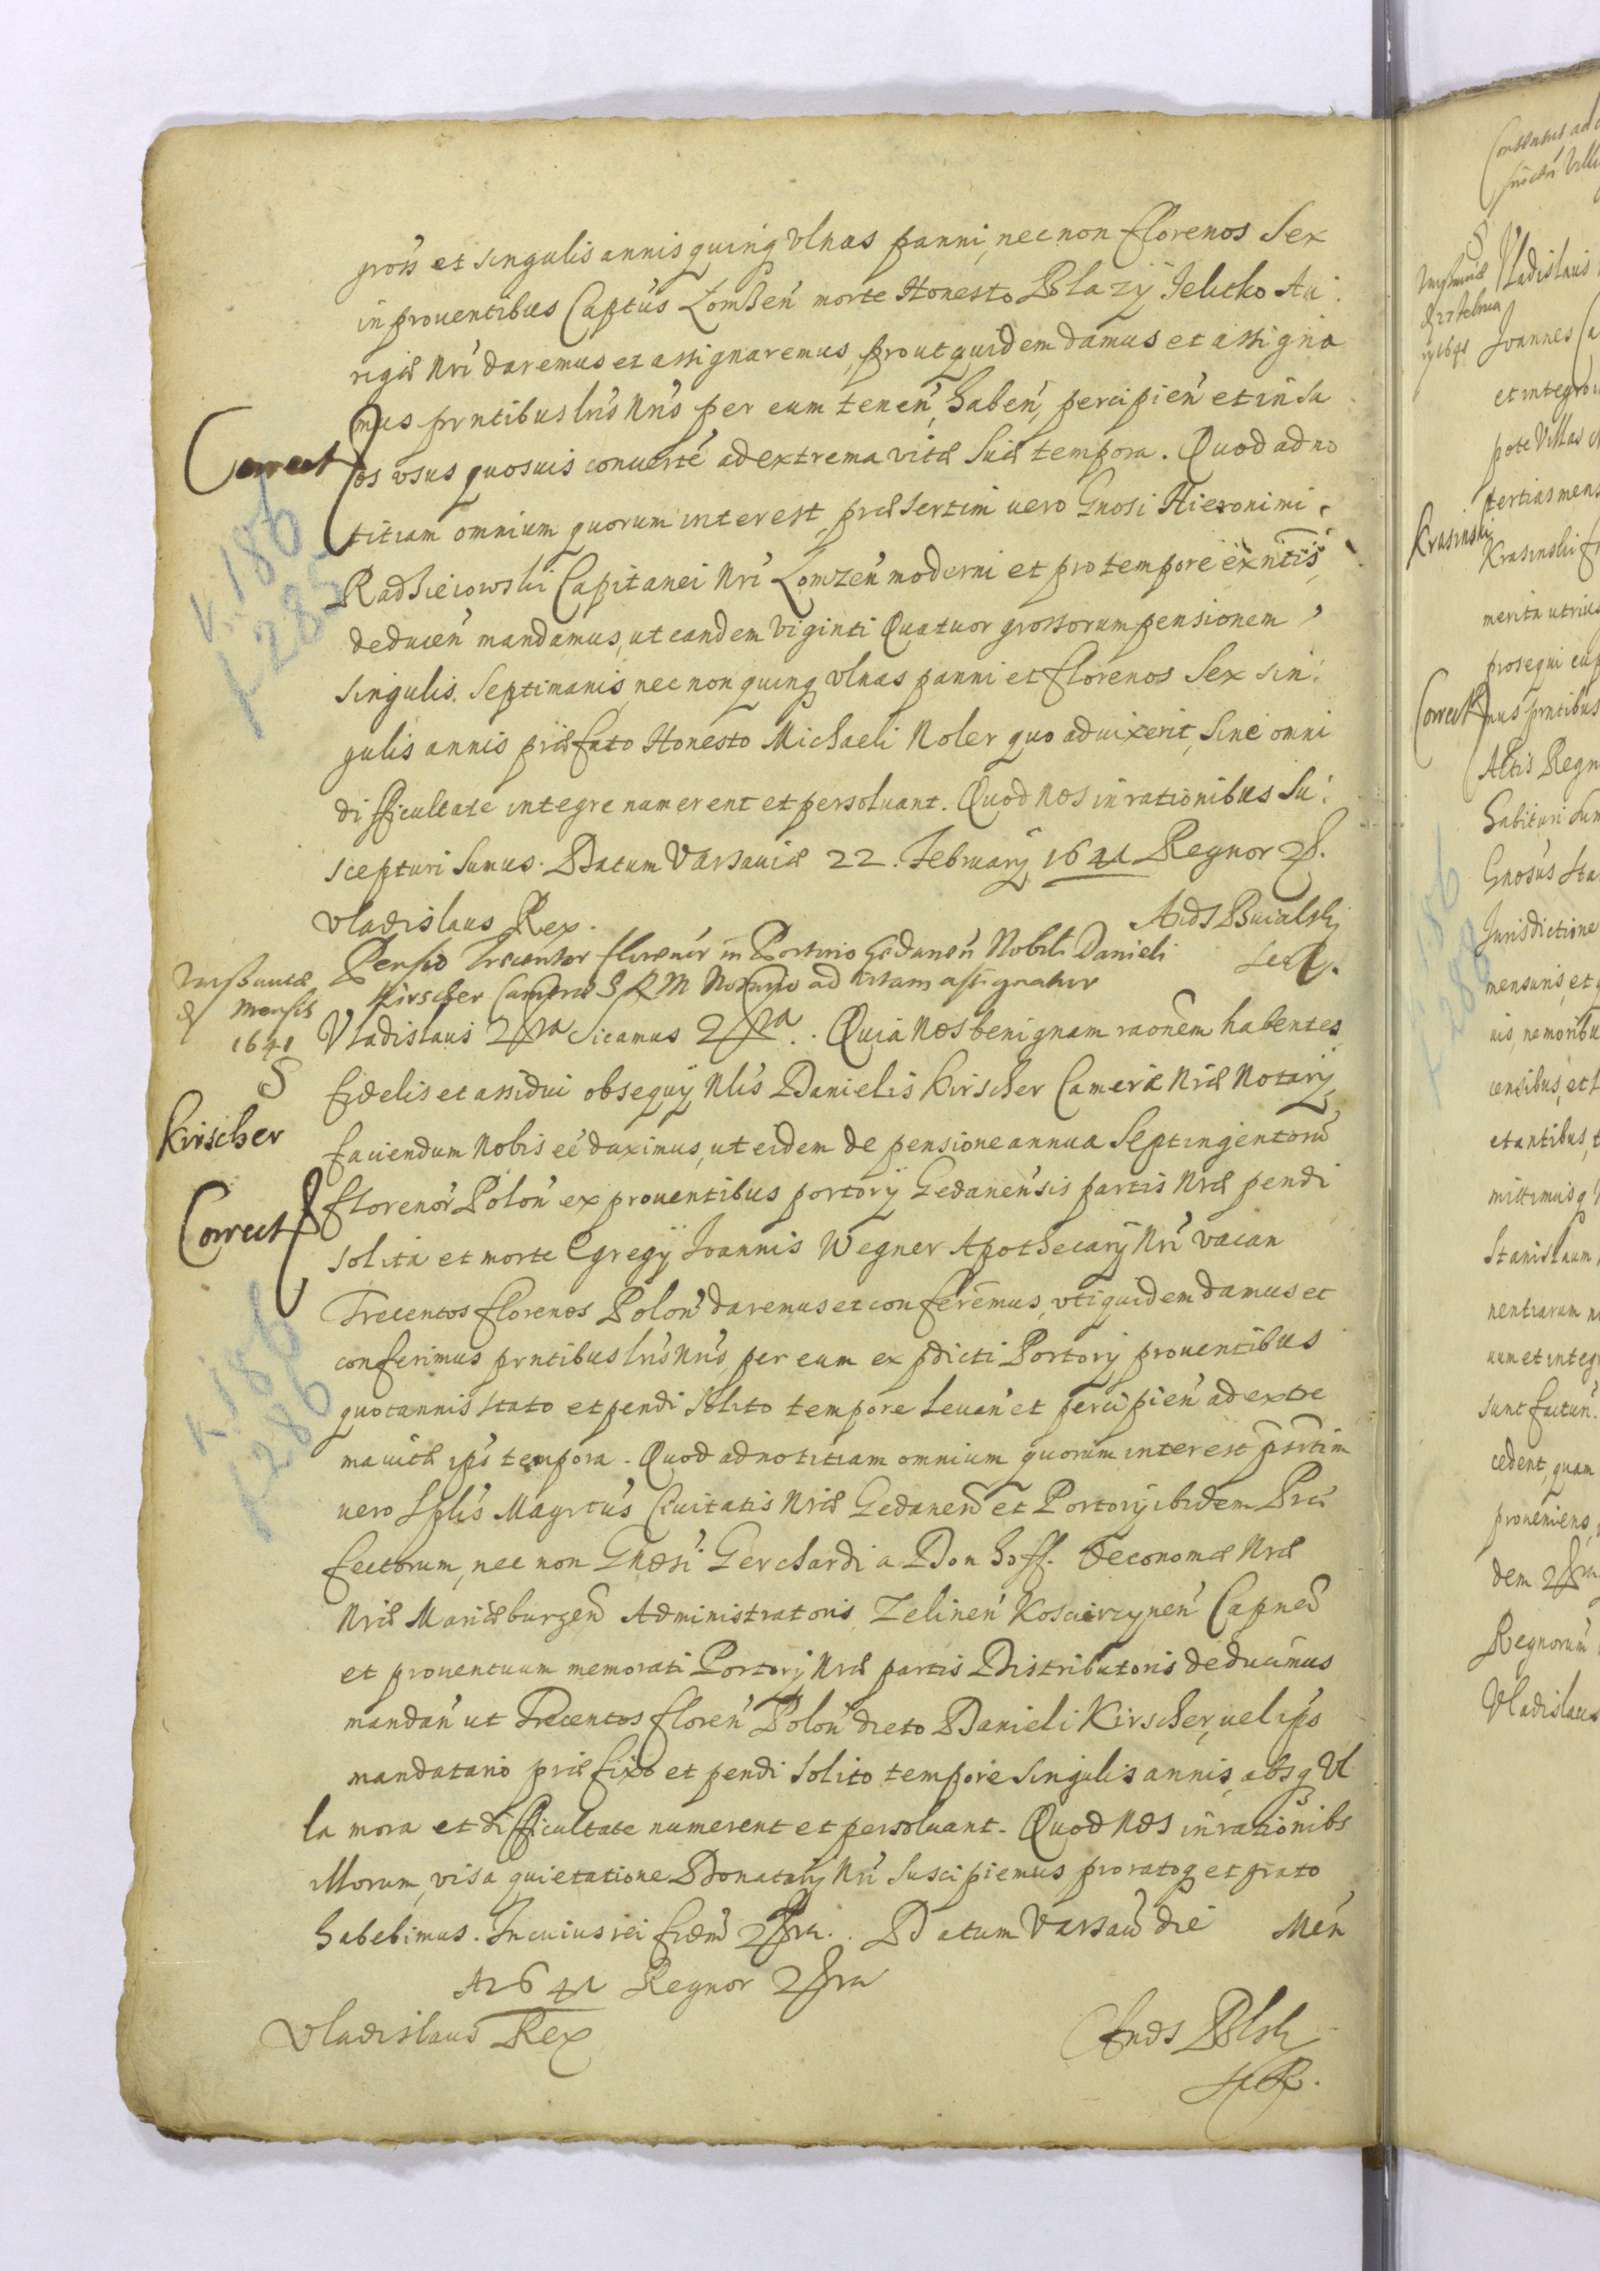 gross et singulis annis quinq Vlnas panni, nec non florenos Sex
in prouentibus Captus Lomsen morte Honesto Blazij Jelitko Au
rigæ Nri daremus et assignaremus, prout quidem damus et assigna
mus prntibus lris Nris per eum tenen, haben, percipien et in su
os vsus quosuis conuerte ad extrema vitæ suæ tempora. Quod ad no
Correct
titiam omnium quorum interest, præsertim uero Gnosi Hieronimi
Radzieiowski Capitanei Nri Lomzen moderni et pro tempore exntis
deducen mandamus, ut eandem Viginti Quatuor grossorum pensionem
singulis septimanis, nec non quinq Vlnas panni et florenos Sex sin
gulis annis præfato Honesto Michaeli Noler quo aduixerit, sine omni
difficultate integre numerent et persoluant. Quod nos in rationibus su
scepturi sumus. Datum Varsauiæ 22. February 1641 Regnor
Vladislaus Rex.
V. 186
f 285
Pensio Trecentor florenor in Portorio Gedanen Nobili Danieli
Kirscher Cameræ S R M Notario ad vitam assignatur
mensis
1641
Vladislaus Sicamus. Quia Nos benignam raonem habentes
fidelis et assidui obsequij Nlis Danielis Kirscher Cameræ Nræ Notarij
Kirscher
faciendum nobis eé duximus, ut eidem de pensione annua Septingentoru
florenor Polon ex prouentibus portorij Gedanensis partis Nræ pendi
Correct
solita et morte Egregij Joannis Wegner Apothecarij Nri vacan
Trecentos florenos Polon daremus et conferremus, vti quidem damus et
conferimus prntibus lris Nris, per eum ex pdicti Portorij prouentibus
quotannis stato et pendi solito tempore leuan et percipien ad extre
ma uitæ ips tempora. Quod ad notitiam omnium quorum interest psrtim
uero Spls Magrtus Ciuitatis Nræ Gedanen et Portorij ibidem Præ
fectorum, nec non Gnosi Gerchardi a Donhoff. Oeconomiæ Nræ
Nræ Mariæburgen Administratoris Zelinen Koscirzynen Capnei
et prouentuum memorati Portorij Nræ partis Distributoris deducimus
mandan ut Trecentos floren Polon dicto Danieli Kirscher, uel ips
mandatario præfixo et pendi solito tempore singulis annis, absq Vl
la mora et difficultate numerent et persoluant. Quod nos in rationibs
illorum, visa quietatione Donatarij Nri suscipiemus, pro ratoq et grato
habebimus. In cuius rei fidem. Datum Varsau die Men
A 1641 Regnor
Vladislaus Rex
186
f 286
Vladislaus
Joannes
et integro
pote Villas
tertias mens
Krasinski
Krasinski
merita utrius
prosequi
Correct
mus prntibus
Actis Regn
habituri sum
Gnosus Sta
Jurisdictione
mensuris, et
uis, nemoribu
censibus, et
mittimusq
Stanislaum
sunt factur.
cedent, quam
proueniens
dem
Regnorum
Vladislaus